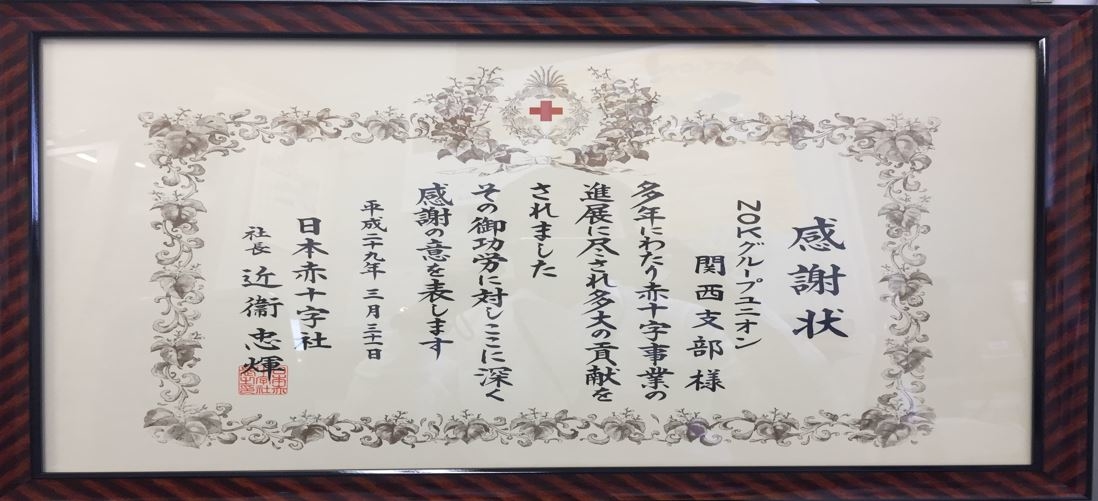 感謝状
NOKグループユニオン
関西支部様
多年にわたり赤十字事業の
進展に尽され多大の貢献を
されました
その御功労に対しここに深く
感謝の意を表します
平成二十九年 三月 三十一日
日本赤十字社
社長 近衞忠煇